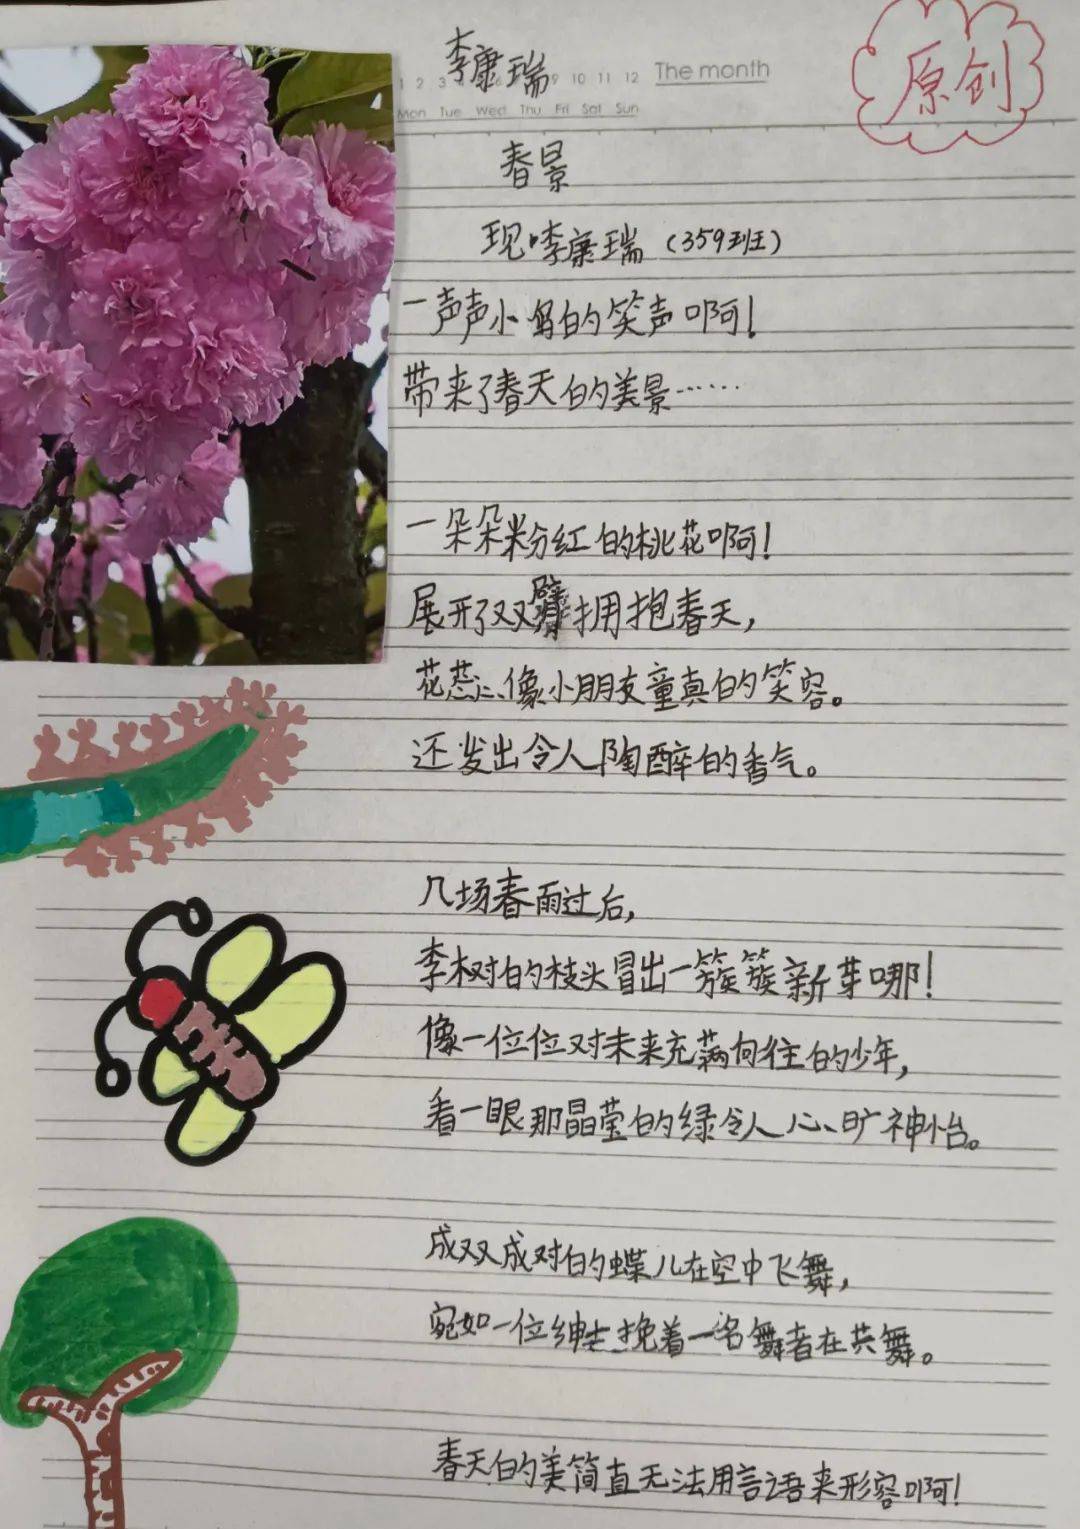 李康瑞
原创
1 2 3 6 9 10 11 12 The month
Mon Tue Wed Thu Fri Sat Sun
春景
现·李康瑞（359班）
一声声小鸟的笑声啊！
带来了春天的美景……
一朵朵粉红的桃花啊！
展开了双臂拥抱春天，
花蕊像小朋友童真的笑容。
还发出令人陶醉的香气。
几场春雨过后，
李树的枝头冒出一簇簇新芽哪！
像一位位对未来充满向往的少年，
看一眼那晶莹的绿令人心旷神怡。
成双成对的蝶儿在空中飞舞，
宛如一位绅士挽着一名舞者在共舞。
春天的美简直无法用言语来形容啊！